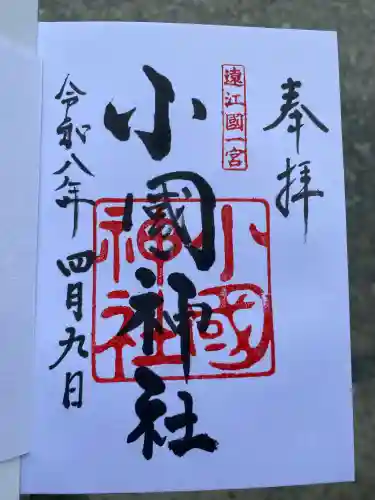 奉拝
遠江國一宮
小國神社
小國神社
令和八年四月九日